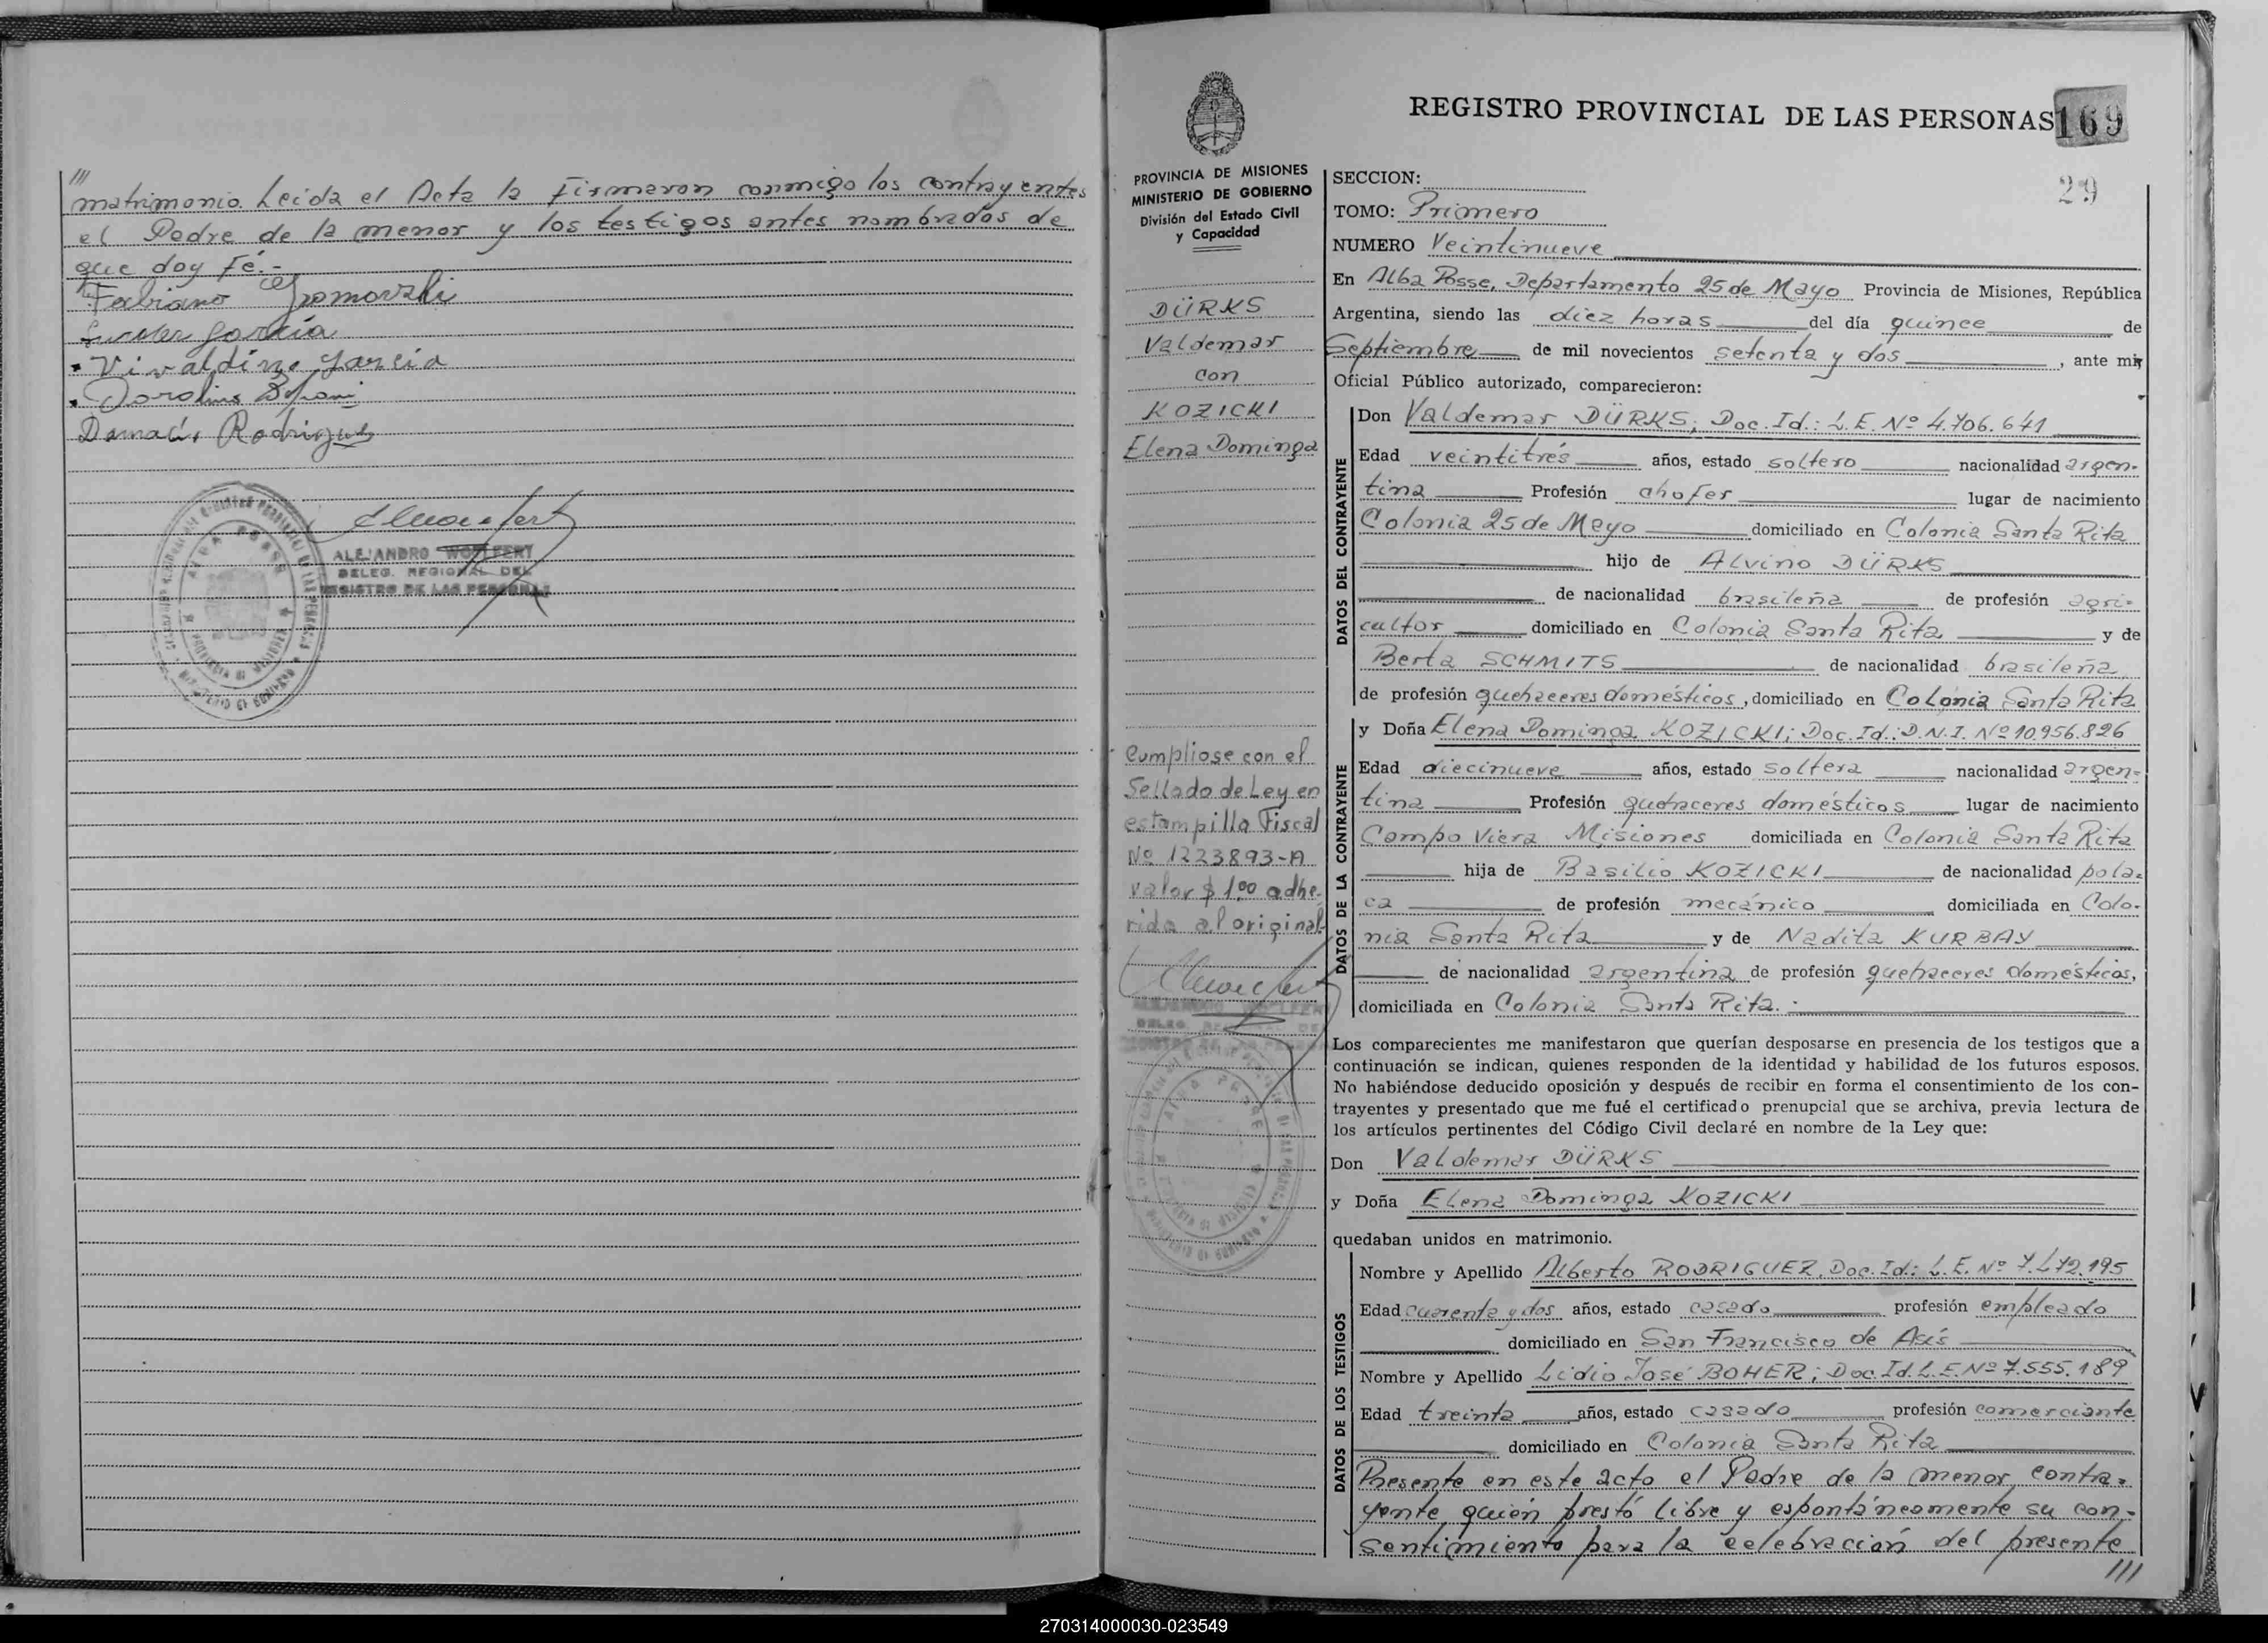 ///
matrimonio. Leída el Acta la firmaron conmigo los contrayentes
el Padre de la menor y los testigos antes nombrados de
que doy Fé.-
Fabiano
García
Vivaldino García
Rodríguez
ALEJANDRO WOLFERT
DELEG. REGIONAL DEL
REGISTRO DE LAS PERSONAS
REGISTRO PROVINCIAL DE LAS PERSONAS
169
29
PROVINCIA DE MISIONES
MINISTERIO DE GOBIERNO
División del Estado Civil
y Capacidad
DÜRKS
Valdemar
con
KOZICKI
Elena Dominga
Cumpliose con el
Sellado de Ley en
estampilla Fiscal
Nº 1223893-A
valor $ 1,00 adhe-
rida al original-
SECCION:
TOMO: Primero
NUMERO Veintinueve
En Alba Posse, Departamento 25 de Mayo Provincia de Misiones, República
Argentina, siendo las diez horas del día quince de
Septiembre de mil novecientos setenta y dos, ante mi,
Oficial Público autorizado, comparecieron:
DATOS DEL CONTRAYENTE
Don Valdemar DÜRKS; Doc. Id.: L.E. Nº 4.706.641
Edad veintitrés años, estado soltero nacionalidad argen-
tina Profesión chofer lugar de nacimiento
Colonia 25 de Mayo domiciliado en Colonia Santa Rita
hijo de Alvino DÜRKS
de nacionalidad brasileña de profesión agri-
cultor domiciliado en Colonia Santa Rita y de
Berta SCHMITS de nacionalidad brasileña
de profesión quehaceres domésticos, domiciliado en Colonia Santa Rita
DATOS DE LA CONTRAYENTE
y Doña Elena Dominga KOZICKI; Doc. Id.: D.N.I. Nº 10.956.826
Edad diecinueve años, estado soltera nacionalidad argen-
tina Profesión quehaceres domésticos lugar de nacimiento
Campo Viera Misiones domiciliada en Colonia Santa Rita
hija de Basilio KOZICKI de nacionalidad pola-
ca de profesión mecánico domiciliada en Colo-
nia Santa Rita y de Nadita KURBAY
de nacionalidad argentina de profesión quehaceres domésticos,
domiciliada en Colonia Santa Rita.-
Los comparecientes me manifestaron que querían desposarse en presencia de los testigos que a
continuación se indican, quienes responden de la identidad y habilidad de los futuros esposos.
No habiéndose deducido oposición y después de recibir en forma el consentimiento de los con-
trayentes y presentado que me fué el certificado prenupcial que se archiva, previa lectura de
los artículos pertinentes del Código Civil declaré en nombre de la Ley que:
Don Valdemar DÜRKS
y Doña Elena Dominga KOZICKI
quedaban unidos en matrimonio.
DATOS DE LOS TESTIGOS
Nombre y Apellido Alberto RODRIGUEZ, Doc. Id.: L.E. Nº
Edad cuarenta y dos años, estado casado profesión empleado
domiciliado en San Francisco de Asís
Nombre y Apellido Lidio José BOHER; Doc. Id. L.E. Nº 7.555.189
Edad treinta años, estado casado profesión comerciante
domiciliado en Colonia Santa Rita
Presente en este acto el Padre de la menor contra-
yente, quién prestó libre y espontáneamente su con-
sentimiento para la celebración del presente
///
270314000030-023549